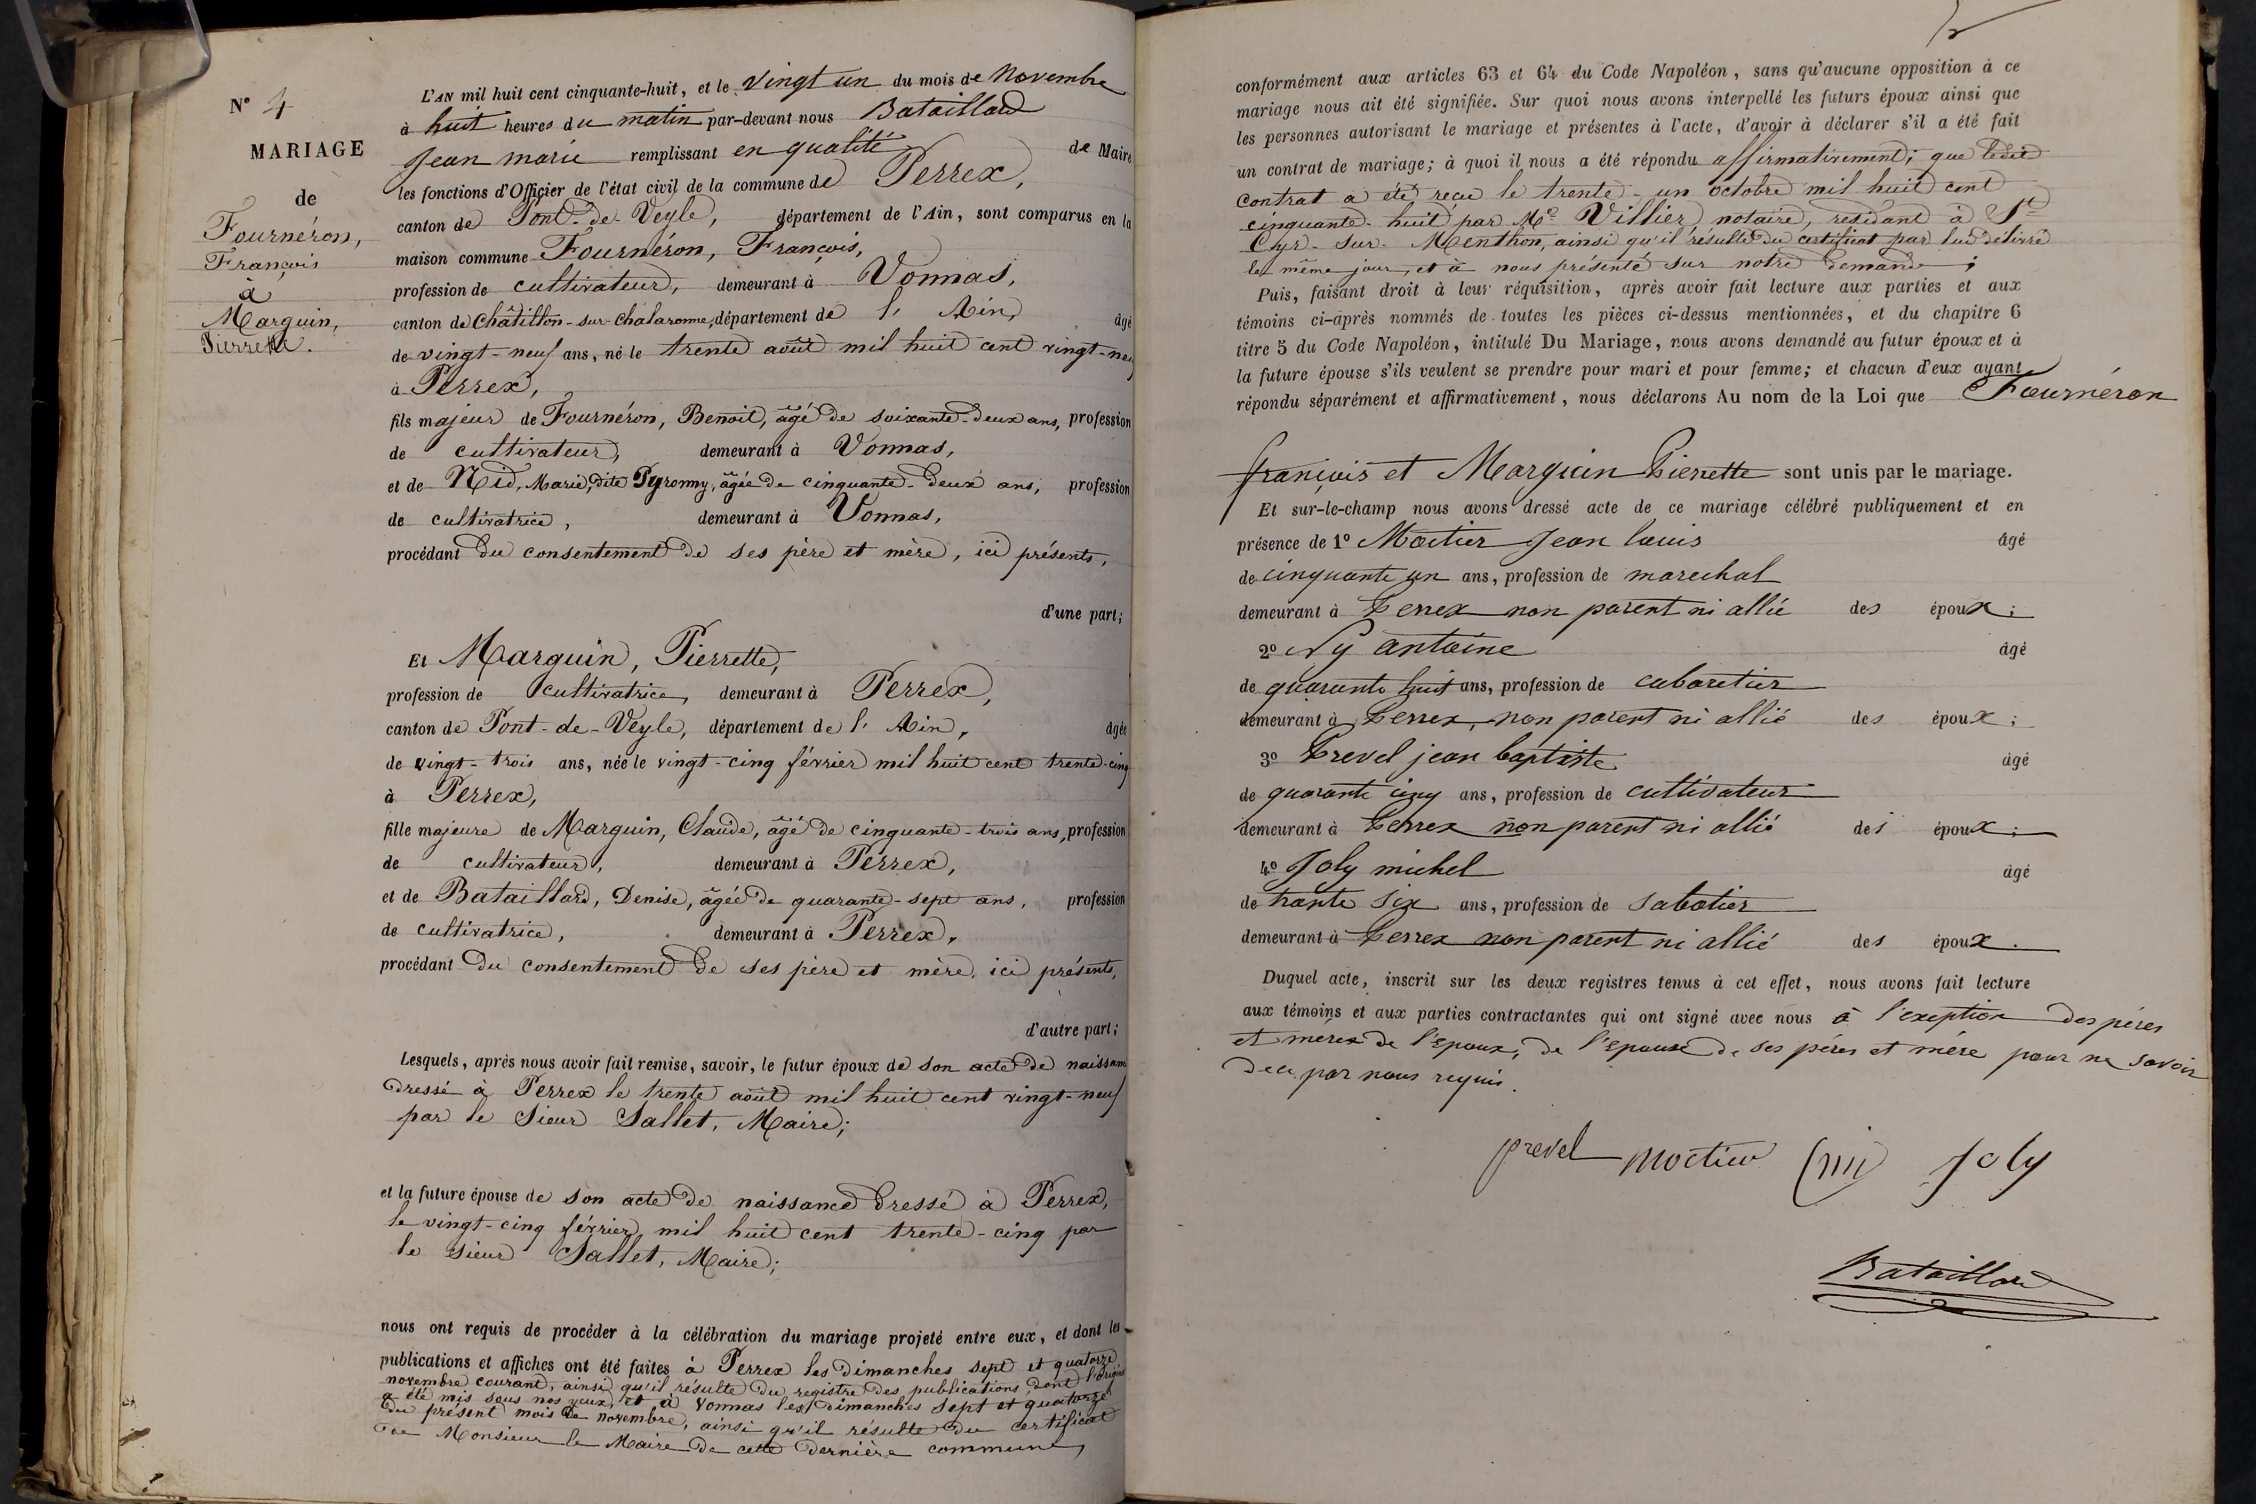 N° 4
MARIAGE
de
Fournéron,
François
à
Marguin,
Pierrette.
L'AN mil huit cent cinquante-huit, et le vingt un du mois de Novembre
à huit heures du matin par-devant nous Bataillard
Jean marie remplissant en qualité de Maire
les fonctions d'Officier de l'état civil de la commune de Perrex,
canton de Pont-de-Veyle, département de l'Ain, sont comparus en la
maison commune Fournéron, François,
profession de cultivateur, demeurant à Vonnas,
canton de Châtillon-sur-Chalaronne, département de l'Ain, âgé
de vingt-neuf ans, né le trente août mil huit cent vingt-neuf
à Perrex,
fils majeur de Fournéron, Benoit, âgé de soixante-deux ans, profession
de cultivateur, demeurant à Vonnas,
et de Nid, Marie, dite Pyronny, âgée de cinquante-deux ans, profession
de cultivatrice, demeurant à Vonnas,
procédant du consentement de ses père et mère, ici présents,
d'une part;
Et Marguin, Pierrette,
profession de cultivatrice, demeurant à Perrex,
canton de Pont-de-Veyle, département de l'Ain, âgée
de vingt-trois ans, née le vingt-cinq février mil huit cent trente-cinq
à Perrex,
fille majeure de Marguin, Claude, âgé de cinquante-trois ans, profession
de cultivateur, demeurant à Perrex,
et de Bataillard, Denise, âgée de quarante-sept ans, profession
de cultivatrice, demeurant à Perrex,
procédant du consentement de ses père et mère, ici présents,
d'autre part;
Lesquels, après nous avoir fait remise, savoir, le futur époux de son acte de naissance
dressé à Perrex le trente août mil huit cent vingt-neuf
par le Sieur Sallet, Maire;
et la future épouse de son acte de naissance dressé à Perrex,
le vingt-cinq février mil huit cent trente-cinq par
le sieur Sallet, Maire;
nous ont requis de procéder à la célébration du mariage projeté entre eux, et dont les
publications et affiches ont été faites à Perrex les Dimanches sept et quatorze
novembre courant, ainsi qu'il résulte du registre des publications, dont l'original
a été mis sous nos yeux, et à Vonnas les dimanches sept et quatorze
du présent mois de novembre, ainsi qu'il résulte du certificat
de Monsieur le Maire de cette dernière commune,
conformément aux articles 63 et 64 du Code Napoléon, sans qu'aucune opposition à ce
mariage nous ait été signifiée. Sur quoi nous avons interpellé les futurs époux ainsi que
les personnes autorisant le mariage et présentes à l'acte, d'avoir à déclarer s'il a été fait
un contrat de mariage; à quoi il nous a été répondu affirmativement; que ledit
contrat a été reçu le trente-un octobre mil huit cent
cinquante-huit par Me Villier, notaire, résidant à St
Cyr-sur-Menthon, ainsi qu'il résulte du certificat par lui délivré
le même jour, et à nous présenté sur notre demande;
Puis, faisant droit à leur réquisition, après avoir fait lecture aux parties et aux
témoins ci-après nommés de toutes les pièces ci-dessus mentionnées, et du chapitre 6
titre 5 du Code Napoléon, intitulé Du Mariage, nous avons demandé au futur époux et à
la future épouse s'ils veulent se prendre pour mari et pour femme; et chacun d'eux ayant
répondu séparément et affirmativement, nous déclarons Au nom de la Loi que Fournéron
françois et Marguin Pierrette sont unis par le mariage.
Et sur-le-champ nous avons dressé acte de ce mariage célébré publiquement et en
présence de 1° Moitier Jean louis âgé
de cinquante un ans, profession de marechal
demeurant à Perrex non parent ni allié des époux;
2° Ny antoine âgé
de quarante huit ans, profession de cabaretier
demeurant à Perrex, non parent ni allié des époux;
3° Prevel jean baptiste âgé
de quarante cinq ans, profession de cultivateur
demeurant à Perrex non parent ni allié des époux;
4° Joly michel âgé
de trante six ans, profession de sabotier
demeurant à Perrex non parent ni allié des époux.
Duquel acte, inscrit sur les deux registres tenus à cet effet, nous avons fait lecture
aux témoins et aux parties contractantes qui ont signé avec nous à l'exeption des péres
et méres de l'Epoux, de l'Epouse de ses péres et mére pour ne savoir
de ce par nous requis.
prevel moitier Joly
Bataillard